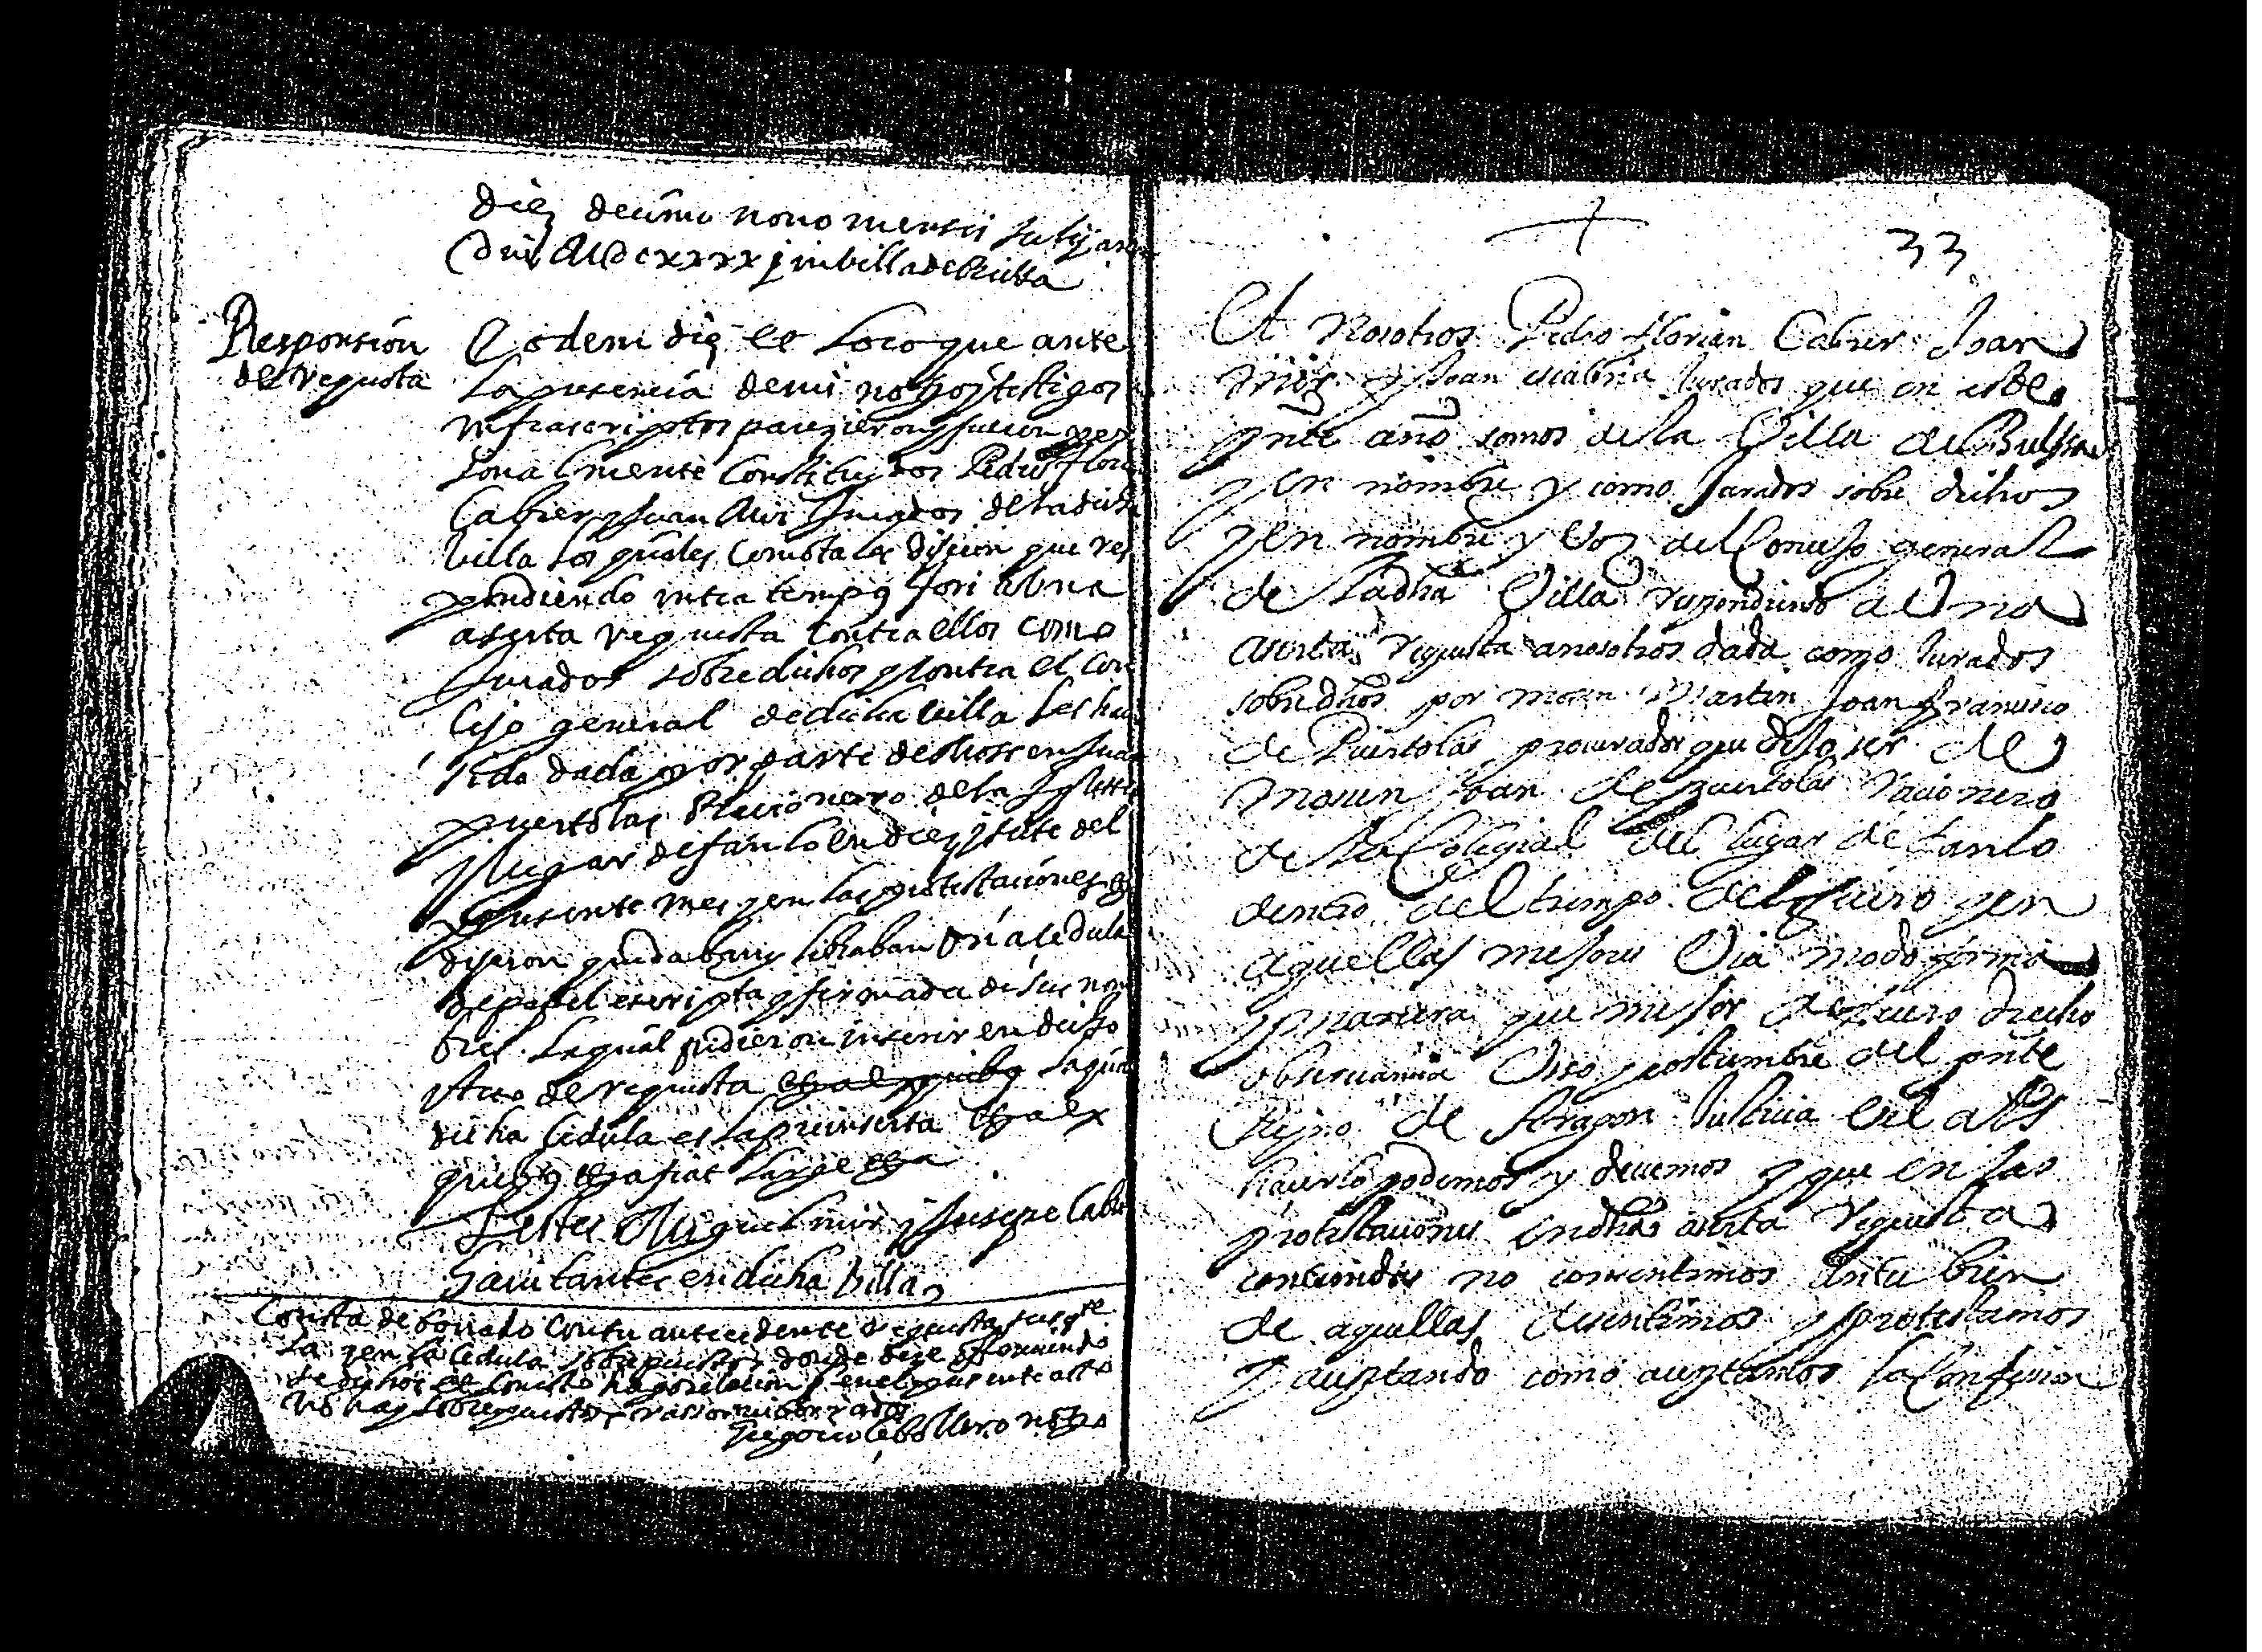 die decimo nono mensis Julij anno
dni MDCxxxx j in villa de Bielsa
Responsion
de requesta
Eodem die et loco que ante
la presencia de mi noto y testigos
infrascriptos parezieron y fueron per
sonalmente constituydos Pedro Flori
Cabrer y Juan Mir Jurados de la dicha
villa los quales como tales dijeron que res
pondiendo intra tempus fori ab una
aserta requesta contra ellos como
Jurados sobredichos y contra el con
cejo general de dicha villa les ha
sido dada por parte de mosen Juan
puertolas Racionero de la Iglesia
lugar de fanlo en diez y siete del
presente mes y en las protestaciones
dijeron que daban y libraban una cedula
de papel escripta y firmada de sus nom
bres la qual pidieron inserir en dicho
acto de requesta la qual
dicha cedula es la preinserta ex
quibus fiat large
Testes Miguel mir y Jusepe Cabrer
havitantes en dicha villa
Consta de borrado con tu antecedente requesta
la y en la cedula sobrepuesto donde
de dichos en el presente acto
no hay sobrepuesto
Caballero noto
33
A Nosotros Pedro Florian Cabrer Joan
mir y Joan Jurados que en este
pnte año somos de la Villa de Bielsa
y en nombre y como Jurados sobre dichos
y en nombre y voz del Concejo general
de la dha Villa respondiendo a una
aserta requesta a nosotros dada como Jurados
sobredhos por mosen Martin Joan Francisco
de Puertolas procurador que dijo ser de
mosen Joan de puertolas racionero
de la Colegial del lugar de fanlo
dentro del tiempo del fuero y en
aquellas mejores via modo forma
y manera que mejor de fuero drecho
observancia Uso y costumbre del pnte
Reyno de Aragon Justicia vel als
hacerlo podemos y devemos y que en las
protestaciones en dha aserta requesta
contenidas no consentimos antes bien
de aquellas disentimos y protestamos
y aceptando como aceptamos la Confesion